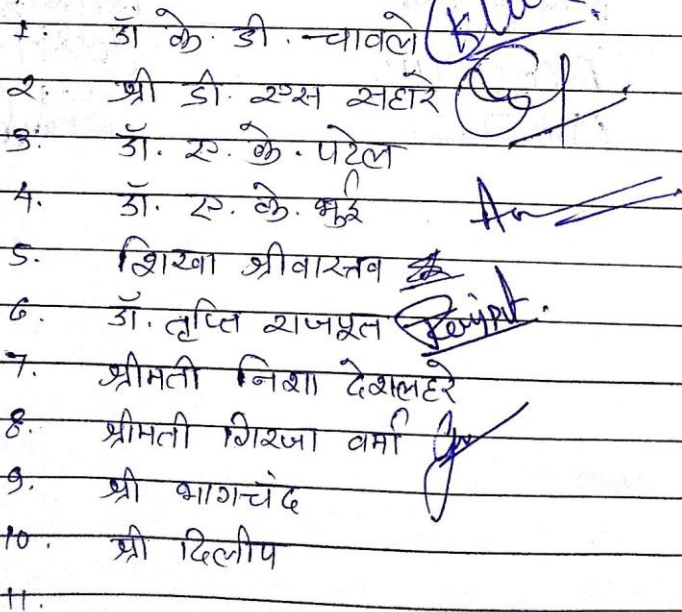 1. डॉ के. डी. चावले
2. श्री डी. एस सहारे
3. डॉ. ए. के. पटेल
4. डॉ. ए. के. भुई
5. शिखा श्रीवास्तव
6. डॉ. तृप्ति राजपूत Rajput.
7. श्रीमती निशा देशलहरे
8. श्रीमती गिरजा वर्मा
9. श्री भागचंद
10. श्री दिलीप
11.